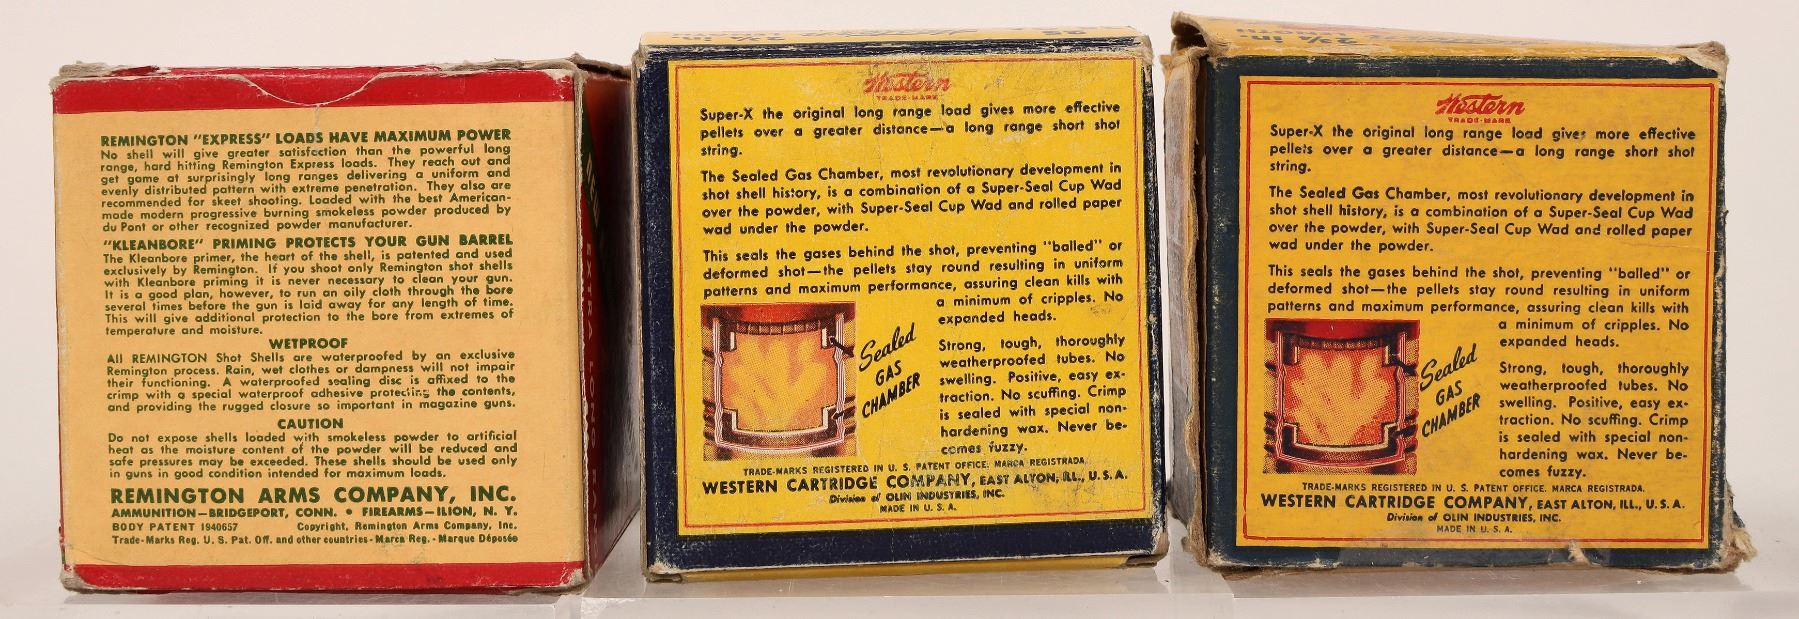 REMINGTON "EXPRESS" LOADS HAVE MAXIMUM POWER
No shell will give greater satisfaction than the powerful long
range, hard hitting Remington Express loads. They reach out and
get game at surprisingly long ranges delivering a uniform and
evenly distributed pattern with extreme penetration. They also are
recommended for skeet shooting. Loaded with the best American-
made modern progressive burning smokeless powder produced by
du Pont or other recognized powder manufacturer.
"KLEANBORE" PRIMING PROTECTS YOUR GUN BARREL
The Kleanbore primer, the heart of the shell, is patented and used
exclusively by Remington. If you shoot only Remington shot shells
with Kleanbore priming it is never necessary to clean your gun.
It is a good plan, however, to run an oily cloth through the bore
several times before the gun is laid away for any length of time.
This will give additional protection to the bore from extremes of
temperature and moisture.
WETPROOF
All REMINGTON Shot Shells are waterproofed by an exclusive
Remington process. Rain, wet clothes or dampness will not impair
their functioning. A waterproofed sealing disc is affixed to the
crimp with a special waterproof adhesive protecting the contents,
and providing the rugged closure so important in magazine guns.
CAUTION
Do not expose shells loaded with smokeless powder to artificial
heat as the moisture content of the powder will be reduced and
safe pressures may be exceeded. These shells should be used only
in guns in good condition intended for maximum loads.
REMINGTON ARMS COMPANY, INC.
AMMUNITION—BRIDGEPORT, CONN. • FIREARMS—ILION, N. Y.
BODY PATENT 1940657 Copyright, Remington Arms Company, Inc.
Trade-Marks Reg. U. S. Pat. Off. and other countries - Marca Reg. - Marque Déposée
EXTRA LONG RAN
Western
TRADE-MARK
Super-X the original long range load gives more effective
pellets over a greater distance—a long range short shot
string.
The Sealed Gas Chamber, most revolutionary development in
shot shell history, is a combination of a Super-Seal Cup Wad
over the powder, with Super-Seal Cup Wad and rolled paper
wad under the powder.
This seals the gases behind the shot, preventing "balled" or
deformed shot—the pellets stay round resulting in uniform
patterns and maximum performance, assuring clean kills with
a minimum of cripples. No
expanded heads.
Strong, tough, thoroughly
weatherproofed tubes. No
swelling. Positive, easy ex-
traction. No scuffing. Crimp
is sealed with special non-
hardening wax. Never be-
comes fuzzy.
Sealed
GAS
CHAMBER
TRADE-MARKS REGISTERED IN U. S. PATENT OFFICE. MARCA REGISTRADA.
WESTERN CARTRIDGE COMPANY, EAST ALTON, ILL., U. S. A.
Division of OLIN INDUSTRIES, INC.
MADE IN U. S. A.
2¾ in
Western
TRADE-MARK
Super-X the original long range load gives more effective
pellets over a greater distance—a long range short shot
string.
The Sealed Gas Chamber, most revolutionary development in
shot shell history, is a combination of a Super-Seal Cup Wad
over the powder, with Super-Seal Cup Wad and rolled paper
wad under the powder.
This seals the gases behind the shot, preventing "balled" or
deformed shot—the pellets stay round resulting in uniform
patterns and maximum performance, assuring clean kills with
a minimum of cripples. No
expanded heads.
Strong, tough, thoroughly
weatherproofed tubes. No
swelling. Positive, easy ex-
traction. No scuffing. Crimp
is sealed with special non-
hardening wax. Never be-
comes fuzzy.
Sealed
GAS
CHAMBER
TRADE-MARKS REGISTERED IN U. S. PATENT OFFICE. MARCA REGISTRADA.
WESTERN CARTRIDGE COMPANY, EAST ALTON, ILL., U. S. A.
Division of OLIN INDUSTRIES, INC.
MADE IN U. S. A.